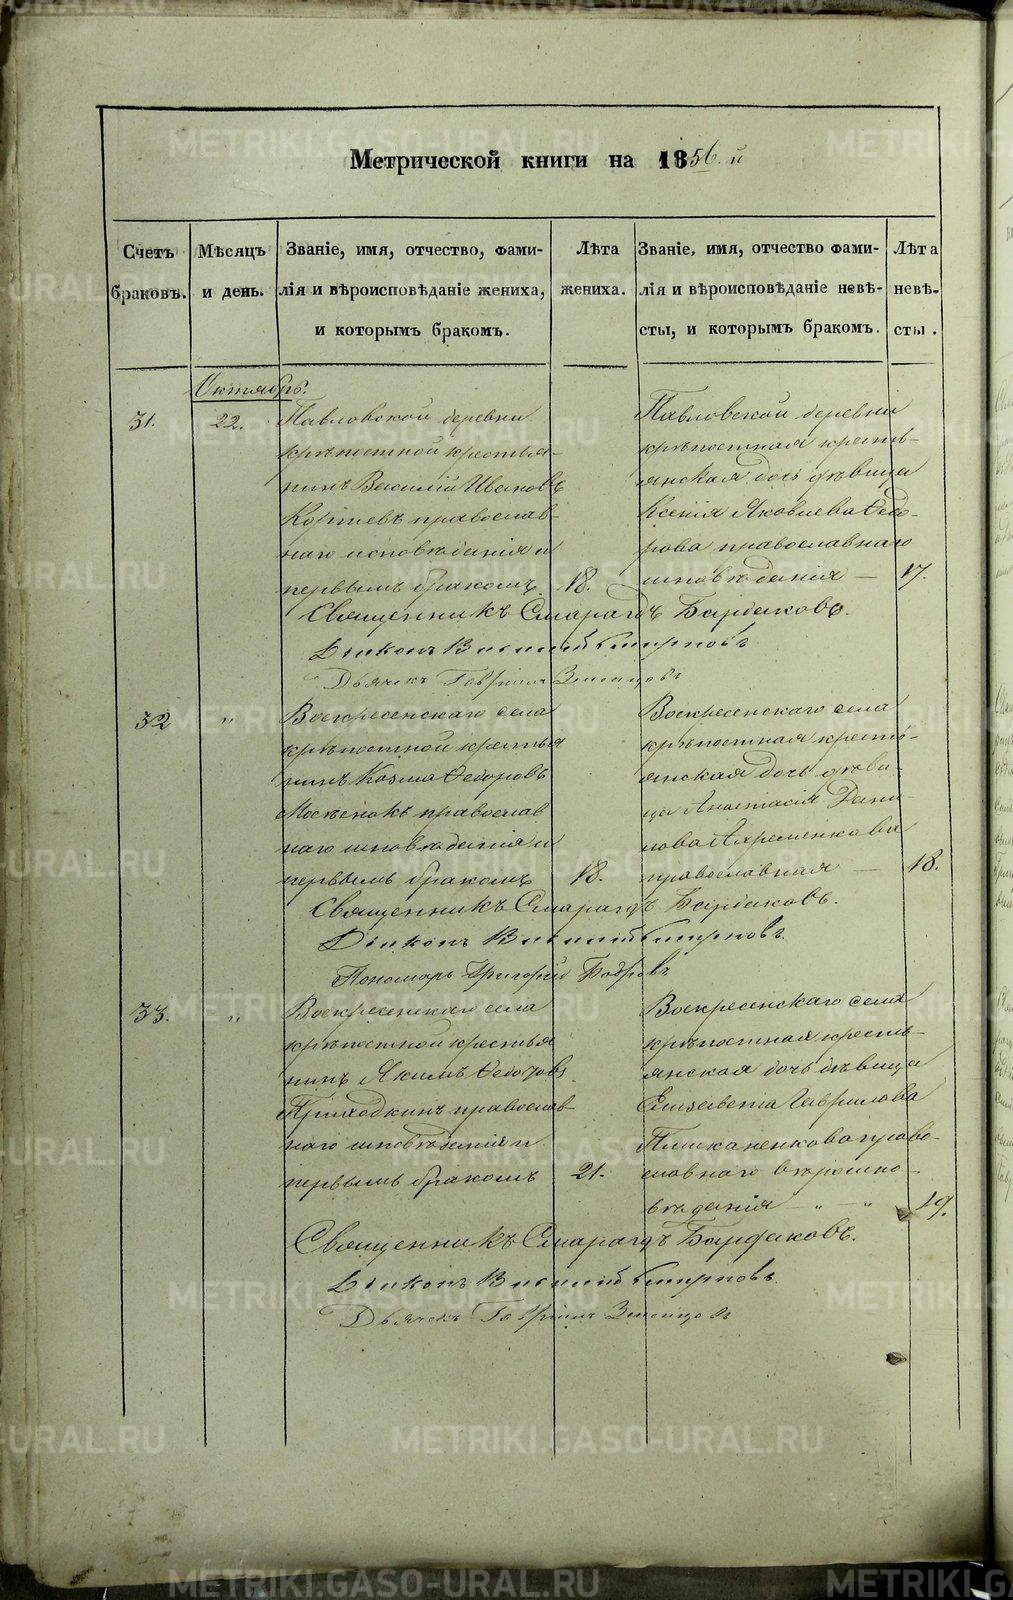 METRIKI.GASO-URAL.RU
Метрической книги на 1856.й
Счетъ браковъ.
Мѣсяцъ и день.
Званіе, имя, отчество, фами-
лія и вѣроисповѣданіе жениха,
и которымъ бракомъ.
Лѣта жениха.
Званіе, имя, отчество фами-
лія и вѣроисповѣданіе невѣ-
сты, и которымъ бракомъ.
Лѣта невѣ-
сты.
Октябрь.
31.
22.
Павловской деревни
крѣпостной крестья-
нинъ Василій Ивановъ
православ-
наго исповѣданія и
первымъ бракомъ
18.
Павловской деревни
крѣпостная кресть-
янская дочь дѣвица
Ксенія Яковлева Ѳедо-
рова православнаго
исповѣданія —
17.
Священникъ Смарагдъ Бардаковъ.
Діаконъ Василій Смирновъ
Дьячекъ Гавріилъ
32
"
Воскресенскаго села
крѣпостной крестья
нинъ Козма Ѳедоровъ
православ
наго исповѣданія и
первымъ бракомъ
18.
Воскресенскаго села
крѣпостная кресть-
янская дочь дѣви-
ца Анастасія Дани-
лова Ахременкова
православная —
18.
Священникъ Смарагдъ Бардаковъ.
Діаконъ Василій Смирновъ
Пономарь Григорій Бобровъ
33.
"
Воскресенскаго села
крѣпостной крестья
нинъ Якимъ Ѳедоровъ
Приходкинъ православ-
наго исповѣданія и
первымъ бракомъ
21.
Воскресенскаго села
крѣпостная кресть-
янская дочь дѣвица
Елизавета Гаврилова
Плисканенкова право-
славнаго вѣроиспо-
вѣданія — " — "
19.
Священникъ Смарагдъ Бардаковъ.
Діаконъ Василій Смирновъ
Дьячекъ Гавріилъ